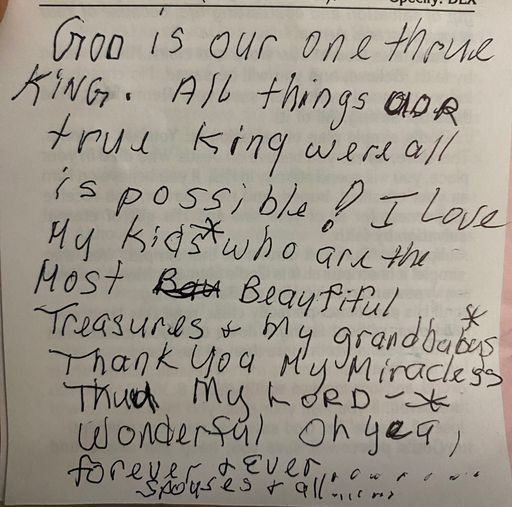 Specify: DEX
GOD is our one thrue
KING. All things OUR
true King were all
is possible! I Love
My Kids* who are the
Most Beautiful
Treasures + My grandbabys *
Thank You My Miracless
My LORD - *
Wonderful Oh yea,
forever + Ever
spouses + all